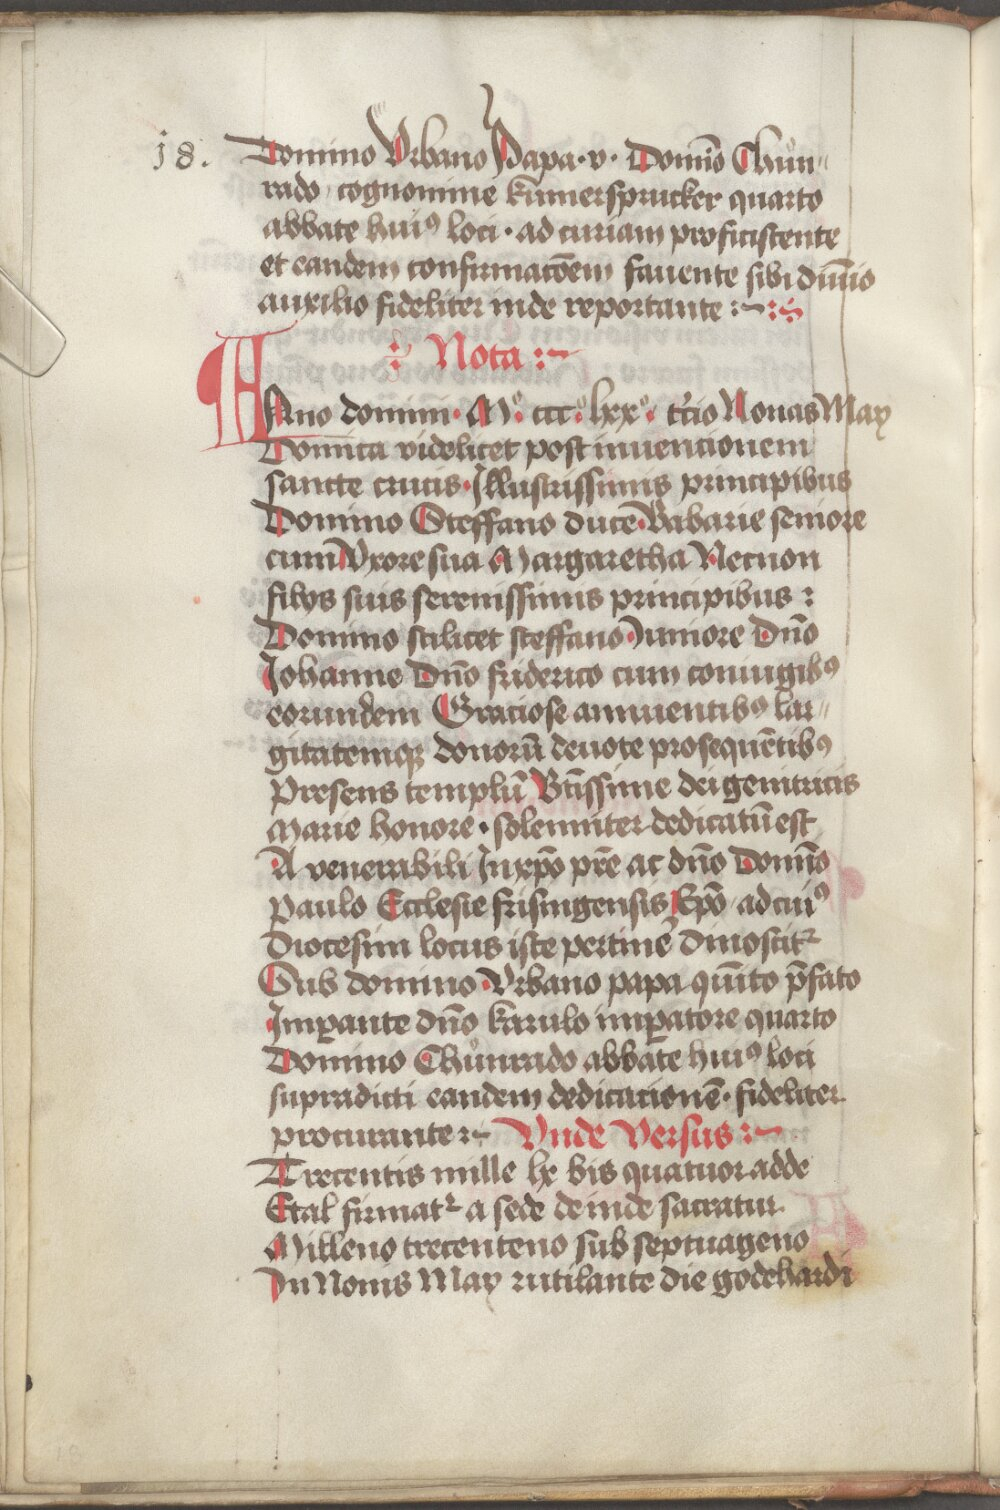 18.
Domino Vrbano Papa · v · Domīo Chůn〃
rado cognomine kumersprucker quarto
abbate huiꝰ loci · ad curiam proficiscente
et eandem confirmacōem fauente sibi diuīo
auxilio fideliter inde reportante :~
Nota :~
Ano domini · Mº cccº lxxº · t'cio Nonas May
Domīca videlicet post inuencionem
sancte crucis · Illustrissimis principibus
Domino Steffano ducē Babarie seniore
cum Vxore sua Margaretha Necnon
filijs suis serenissimis principibus :
Domino scilicet steffano Juniore Dn̄o
Johanne Dn̄o friderico cum coniugibꝰ
eorundem Graciose annuentibꝰ lar〃
gitatemqꝫ donorū deuote prosequētibꝰ
Presens templū Btīssime dei genitricis
Marie honore · solenniter dedicatū est
A venerabili Inxp̄o pr̄e ac dn̄o Domīo
Paulo Ecclesie frisingensis Ep̄o ad cuiꝰ
diocesim locus iste pertine' dinoscitꝛ
Sub domino Vrbano papa quīto p̄fato
Imꝑante dn̄o karulo imꝑatore quarto
Domino Chůnrado abbate huiꝰ loci
supradicti eandem dedicacionē · fideliter
procurante :~ Vnde Versus :~
Trecentis mille lx bis quatuor adde
Etal firmatꝛ a sede deinde sacratur
Milleno trecenteno sub septuageno
In Nonis May rutilante die godehardi
18